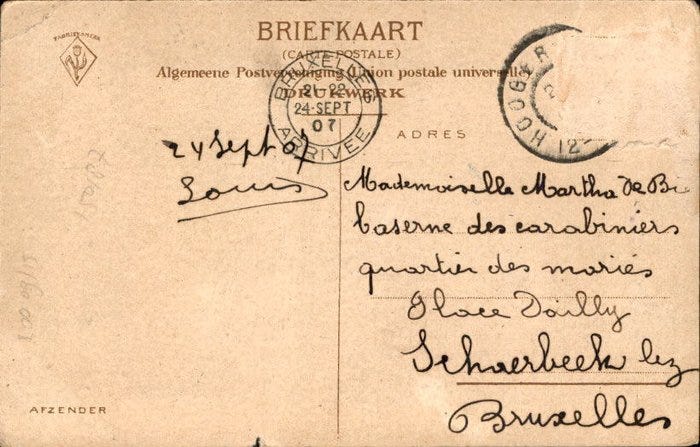 FABRIEKSMERK
BRIEFKAART
(CARTE POSTALE)
Algemeene Postvereeniging Union postale universelle
DRUKWERK
BRUXELLES
21-22
24 SEPT
07
ARRIVÉE
12
ADRES
24 Sept 07
Louis
Mademoiselle Martha de Bi
Caserne des carabiniers
quartier des mariés
Place Dailly
Schaerbeek lez
Bruxelles
AFZENDER